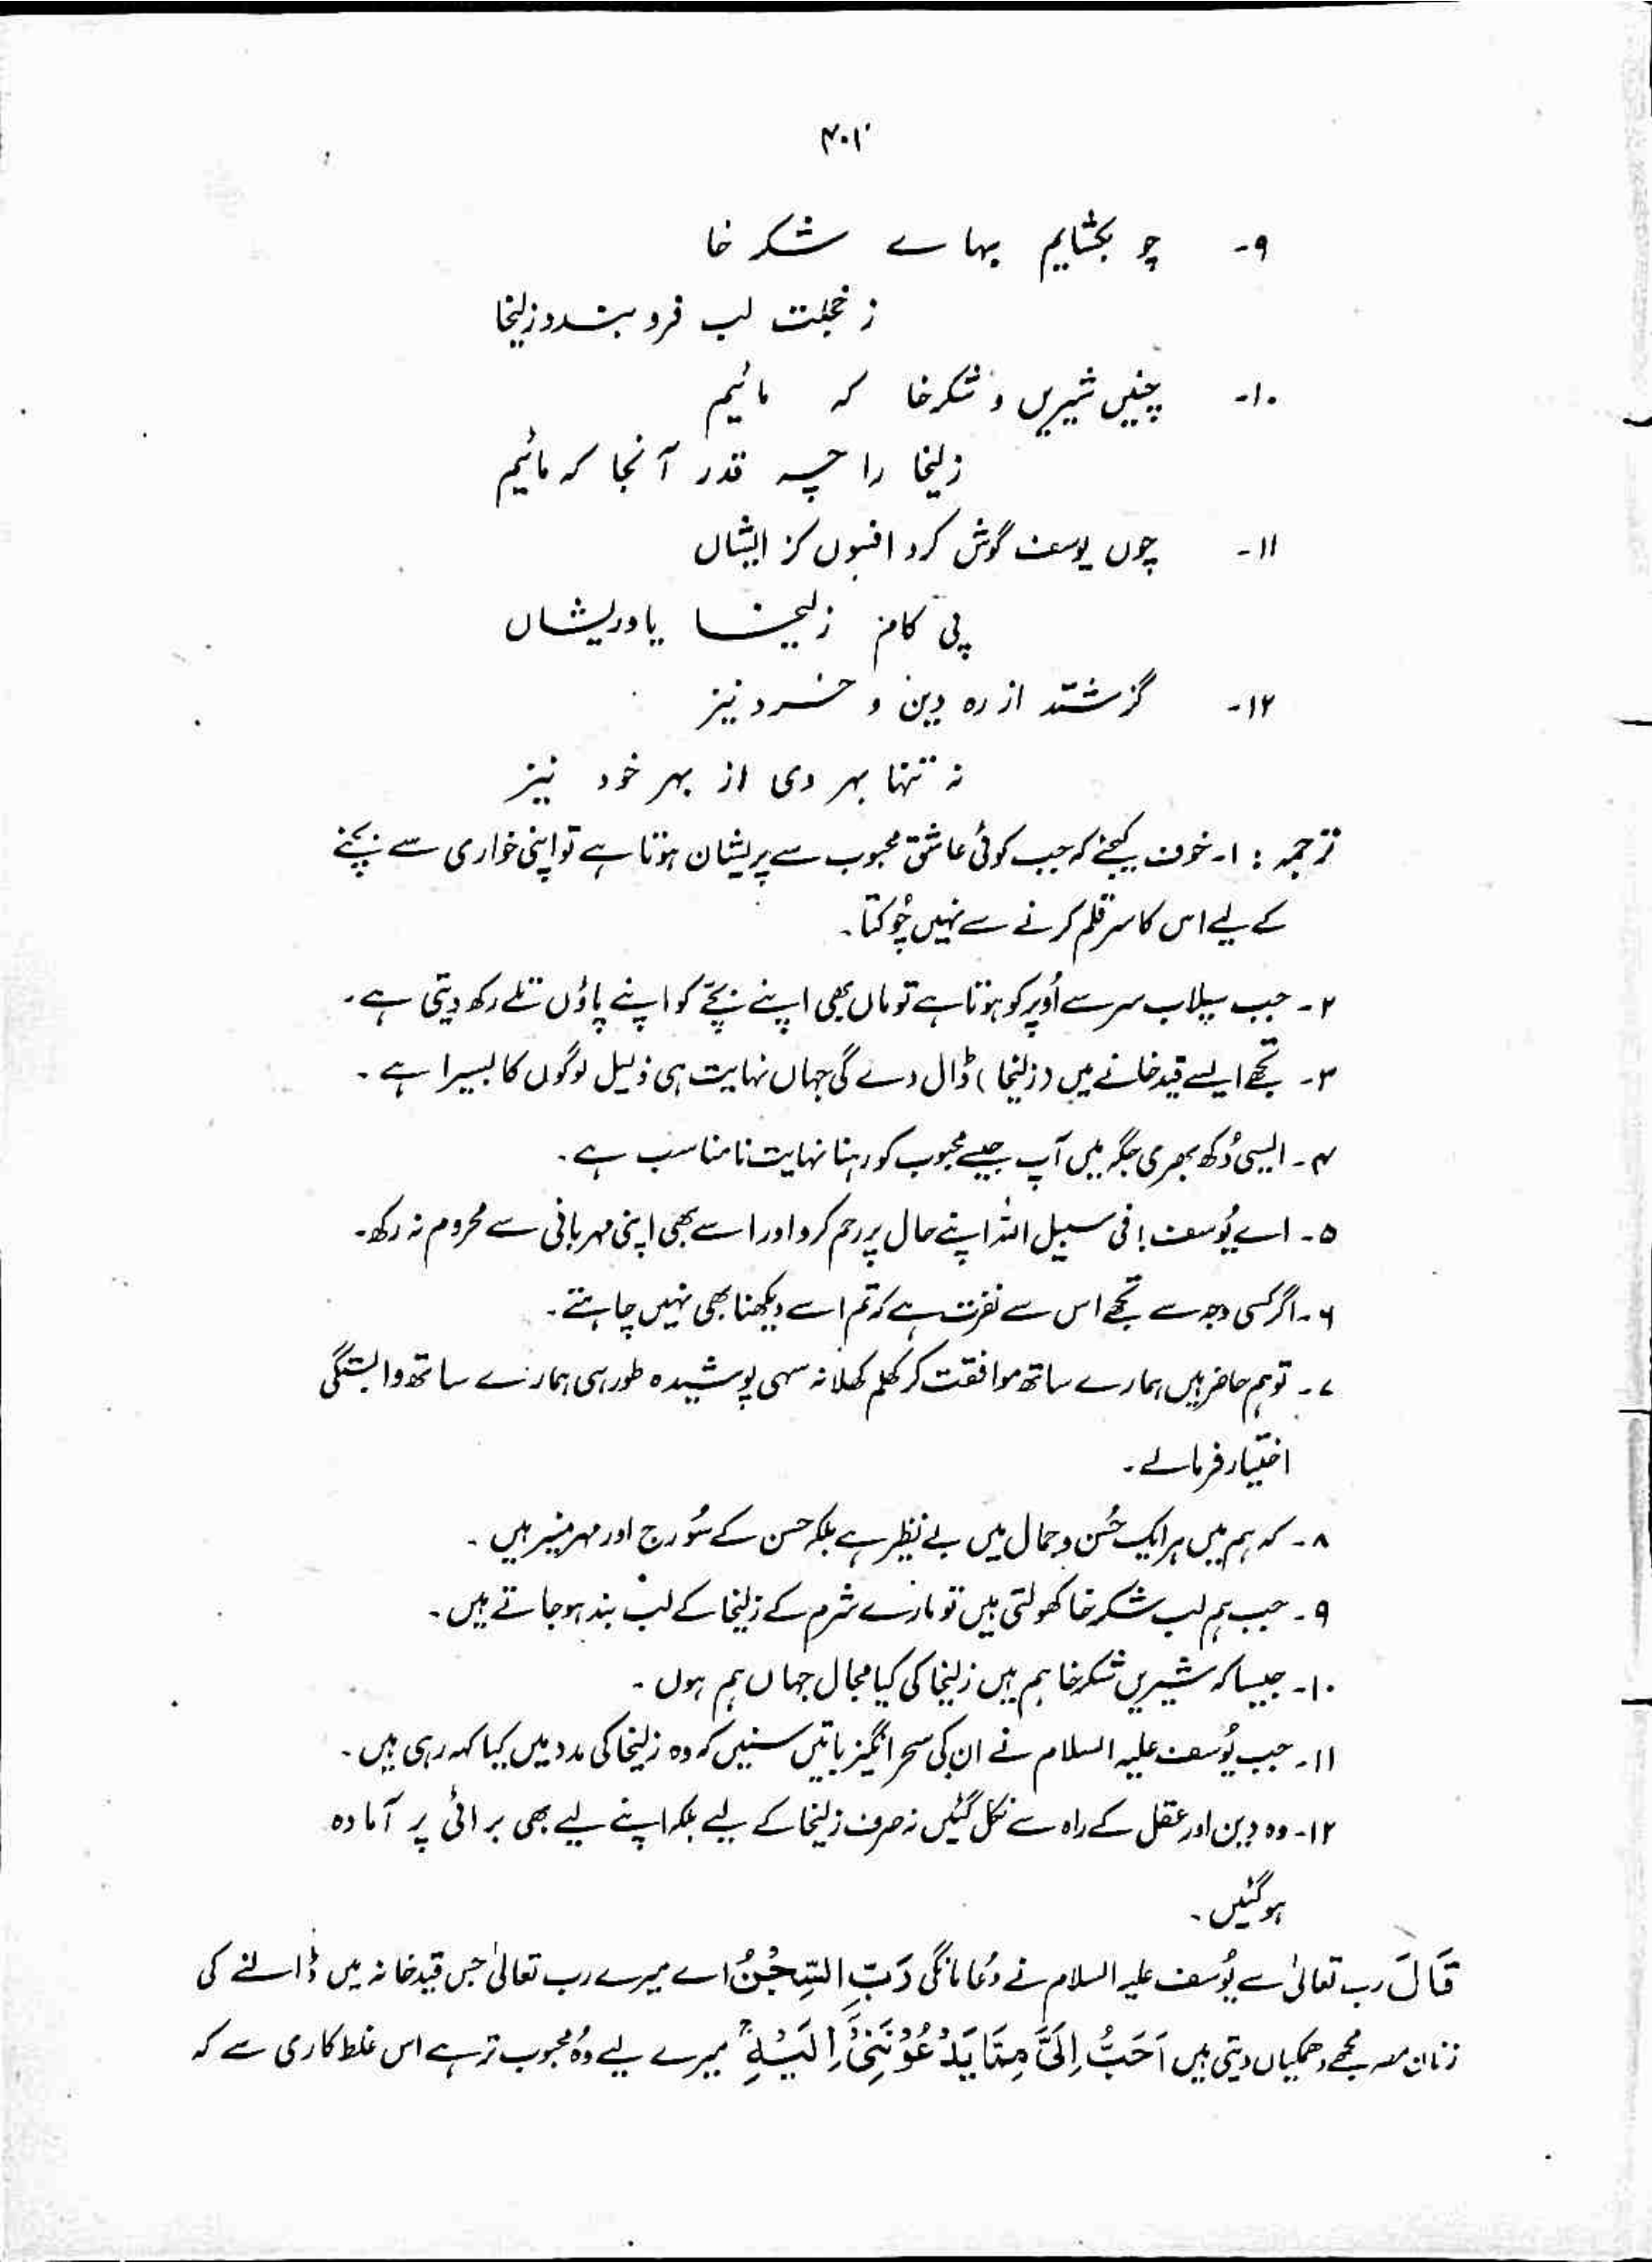 ۴۰۲
۹- چو بکشایم بہا سے شکر خا
ز خجلت لب فرو بندد زلیخا
۱۰- چنیں شیریں و شکر خا کہ مائیم
زلیخا را چہ قدر آنجا کہ مائیم
۱۱- چوں یوسف گوش کرد افسوں کز ایشاں
پی کامز زلیخا یاور یشاں
۱۲- گزشتند از رہ دین و خرد نیز
نہ تنہا بہر دی از بہر خود نیز
ترجمہ : ۱۔ خوف کیجئے کہ جب کوئی عاشق محبوب سے پریشان ہوتا ہے تو اپنی خواری سے بچنے
کے لیے اس کا سر قلم کرنے سے نہیں چُوکتا۔
۲۔ جب سیلاب سر سے اُوپر کو ہوتا ہے تو ماں بھی اپنے بچے کو اپنے پاؤں تلے رکھ دیتی ہے۔
۳۔ تجھے ایسے قید خانے میں (زلیخا) ڈال دے گی جہاں نہایت ہی ذلیل لوگوں کا بسیرا ہے۔
۴۔ ایسی دُکھ بھری جگہ میں آپ جیسے محبوب کو رہنا نہایت نامناسب ہے۔
۵۔ اے یُوسف! فی سبیل اللہ اپنے حال پر رحم کر و اور اسے بھی اپنی مہربانی سے محروم نہ رکھ۔
۶۔ اگر کسی وجہ سے تجھے اس سے نفرت ہے کہ تم اسے دیکھنا بھی نہیں چاہتے۔
۷۔ تو ہم حاضر ہیں ہمارے ساتھ موافقت کر کھلم کھلا نہ سہی پوشیدہ طور سہی ہمارے ساتھ وابستگی
اختیار فرمالے۔
۸۔ کہ ہم میں ہر ایک حُسن و جمال میں بے نظیر ہے بلکہ حسن کے سُورج اور مہر منیر ہیں۔
۹۔ جب ہم لب شکر خا کھولتی ہیں تو مارے شرم کے زلیخا کے لب بند ہو جاتے ہیں۔
۱۰۔ جیسا کہ شیریں شکر خا ہم ہیں زلیخا کی کیا مجال جہاں ہم ہوں۔
۱۱۔ جب یُوسف علیہ السلام نے ان کی سحر انگیز باتیں سنیں کہ وہ زلیخا کی مدد میں کیا کہہ رہی ہیں۔
۱۲۔ وہ دین اور عقل کے راہ سے نکل گئیں نہ صرف زلیخا کے لیے بلکہ اپنے لیے بھی برائی پر آمادہ
ہو گئیں۔
قَالَ رب تعالیٰ سے یُوسف علیہ السلام نے دُعا مانگی رَبِّ السِّجْنُ اے میرے رب تعالیٰ جس قید خانہ میں ڈالنے کی
زنان مصر مجھے دھمکیاں دیتی ہیں اَحَبُّ اِلَیَّ مِمَّا یَدْعُوْنَنِیْٓ اِلَیْہِ ۚ میرے لیے وُہ محبوب تر ہے اس غلط کاری سے کہ